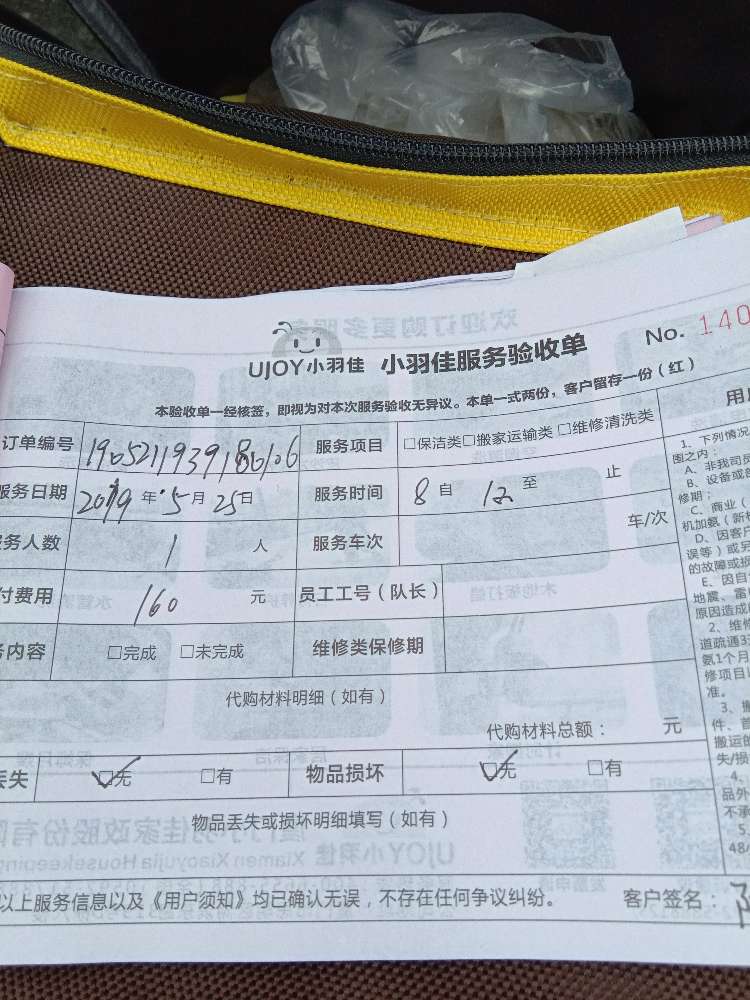 UJOY小羽佳 小羽佳服务验收单
No. 140
本验收单一经核签，即视为对本次服务验收无异议。本单一式两份，客户留存一份（红）
订单编号 服务项目 □保洁类□搬家运输类 □维修清洗类
服务日期 2019年5月25日 服务时间 8 自 12 至 止
务人数 1 人 服务车次 车/次
付费用 160 元 员工工号（队长）
务内容 □完成 □未完成 维修类保修期
代购材料明细（如有）
代购材料总额： 元
丢失 ☑无 □有 物品损坏 ☑无 □有
物品丢失或损坏明细填写（如有）
以上服务信息以及《用户须知》均已确认无误，不存在任何争议纠纷。 客户签名：
用
1、下列情况
围之内：
A、非我司员
B、设备或
修期；
C、商业（
机加氨（新
D、因客户
误等）或另
的故障或损
E、因自
地震、雷
原因造成
2、维修
道疏通3
氨1个月
修项目
准。
3、搬
件、首
搬运的
失/损
4、
品外
不承
5、
48